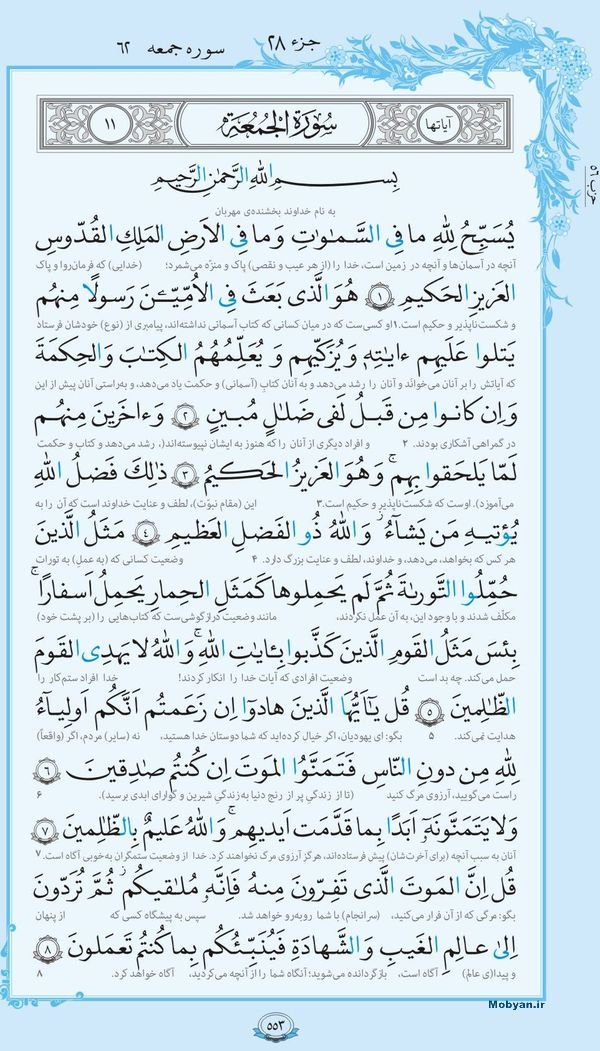 جزء ۲۸ سوره جمعه ۶۲
حزب ۵۶
آیاتها سُورَةُ الجُمُعَة ۱۱
بِسمِ اللهِ الرَّحمٰنِ الرَّحیمِ
به نام خداوند بخشنده‌ی مهربان
یُسَبِّحُ لِلّٰهِ ما فِی السَّمٰوٰتِ وَما فِی الاَرضِ المَلِکِ القُدّوسِ
آنچه در آسمان‌ها و آنچه در زمین است، خدا را (از هر عیب و نقصی) پاک و منزّه می‌شمرد؛ (خدایی) که فرمان‌روا و پاک
العَزیزِ الحَکیمِ ۱ هُوَ الَّذی بَعَثَ فِی الاُمِّیّـٖنَ رَسولًا مِنهُم
و شکست‌ناپذیر و حکیم است. ۱ او کسی‌ست که در میان کسانی که کتاب آسمانی نداشته‌اند، پیامبری از (نوع) خودشان فرستاد
یَتلوا عَلَیهِم ءایٰتِهٖ وَیُزَکّیهِم وَ یُعَلِّمُهُمُ الکِتٰبَ وَالحِکمَةَ
که آیاتش را بر آنان می‌خوانَد و آنان را رشد می‌دهد و به آنان کتاب (آسمانی) و حکمت یاد می‌دهد، و به‌راستی آنان پیش از این
وَاِن کانوا مِن قَبلُ لَفی ضَلٰلٍ مُبینٍ ۲ وَءاخَرینَ مِنهُم
در گمراهی آشکاری بودند. ۲ و افراد دیگری از آنان را که هنوز به ایشان نپیوسته‌اند(، رشد می‌دهد و کتاب و حکمت
لَمّا یَلحَقوا بِهِم ۚ وَهُوَ العَزیزُ الحَکیمُ ۳ ذٰلِکَ فَضلُ اللهِ
می‌آموزد). اوست که شکست‌ناپذیر و حکیم است. ۳ این (مقام نبوّت)، لطف و عنایت خداوند است که آن را به
یُؤتیهِ مَن یَشآءُ ۚ وَاللهُ ذُو الفَضلِ العَظیمِ ۴ مَثَلُ الَّذینَ
هر کس که بخواهد، می‌دهد، و خداوند، لطف و عنایت بزرگ دارد. ۴ وضعیت کسانی که (به عملِ) به تورات
حُمِّلُوا التَّورىٰةَ ثُمَّ لَم یَحمِلوها کَمَثَلِ الحِمارِ یَحمِلُ اَسفارًا ۚ
مکلّف شدند و با وجود این، به آن عمل نکردند، مانند وضعیت درازگوشی‌ست که کتاب‌هایی را (بر پشت خود)
بِئسَ مَثَلُ القَومِ الَّذینَ کَذَّبوا بِـٔایٰتِ اللهِ ۚ وَاللهُ لا یَهدِی القَومَ
حمل می‌کند. چه بد است وضعیت افرادی که آیات خدا را انکار کردند! خدا افراد ستم‌کار را
الظّٰلِمینَ ۵ قُل یٰاَیُّهَا الَّذینَ هادوٓا اِن زَعَمتُم اَنَّکُم اَولِیآءُ
هدایت نمی‌کند. ۵ بگو: ای یهودیان، اگر خیال کرده‌اید که شما دوستان خدا هستید، نه (سایر) مردم، اگر (واقعاً)
لِلّٰهِ مِن دونِ النّاسِ فَتَمَنَّوُا المَوتَ اِن کُنتُم صٰدِقینَ ۶
راست می‌گویید، آرزوی مرگ کنید (تا از زندگیِ پر از رنج دنیا به‌زندگیِ شیرین و گوارای ابدی برسید). ۶
وَلا یَتَمَنَّونَهٗٓ اَبَدًا بِما قَدَّمَت اَیدیهِم ۚ وَاللهُ عَلیمٌ بِالظّٰلِمینَ ۷
آنان به سبب آنچه (برای آخرت‌شان) پیش فرستاده‌اند، هرگز آرزوی مرگ نخواهند کرد. خدا از وضعیت ستمگران به‌خوبی آگاه است. ۷
قُل اِنَّ المَوتَ الَّذی تَفِرّونَ مِنهُ فَاِنَّهٗ مُلٰقیکُم ۖ ثُمَّ تُرَدّونَ
بگو: مرگی که از آن فرار می‌کنید، (سرانجام) با شما روبه‌رو خواهد شد. سپس به پیشگاه کسی که از پنهان
اِلىٰ عالِمِ الغَیبِ وَالشَّهادَةِ فَیُنَبِّئُکُم بِما کُنتُم تَعمَلونَ ۸
و پیدا(ی عالم) آگاه است، بازگردانده می‌شوید؛ آنگاه شما را از آنچه می‌کردید، آگاه خواهد کرد. ۸
Mobyan.ir
۵۵۳